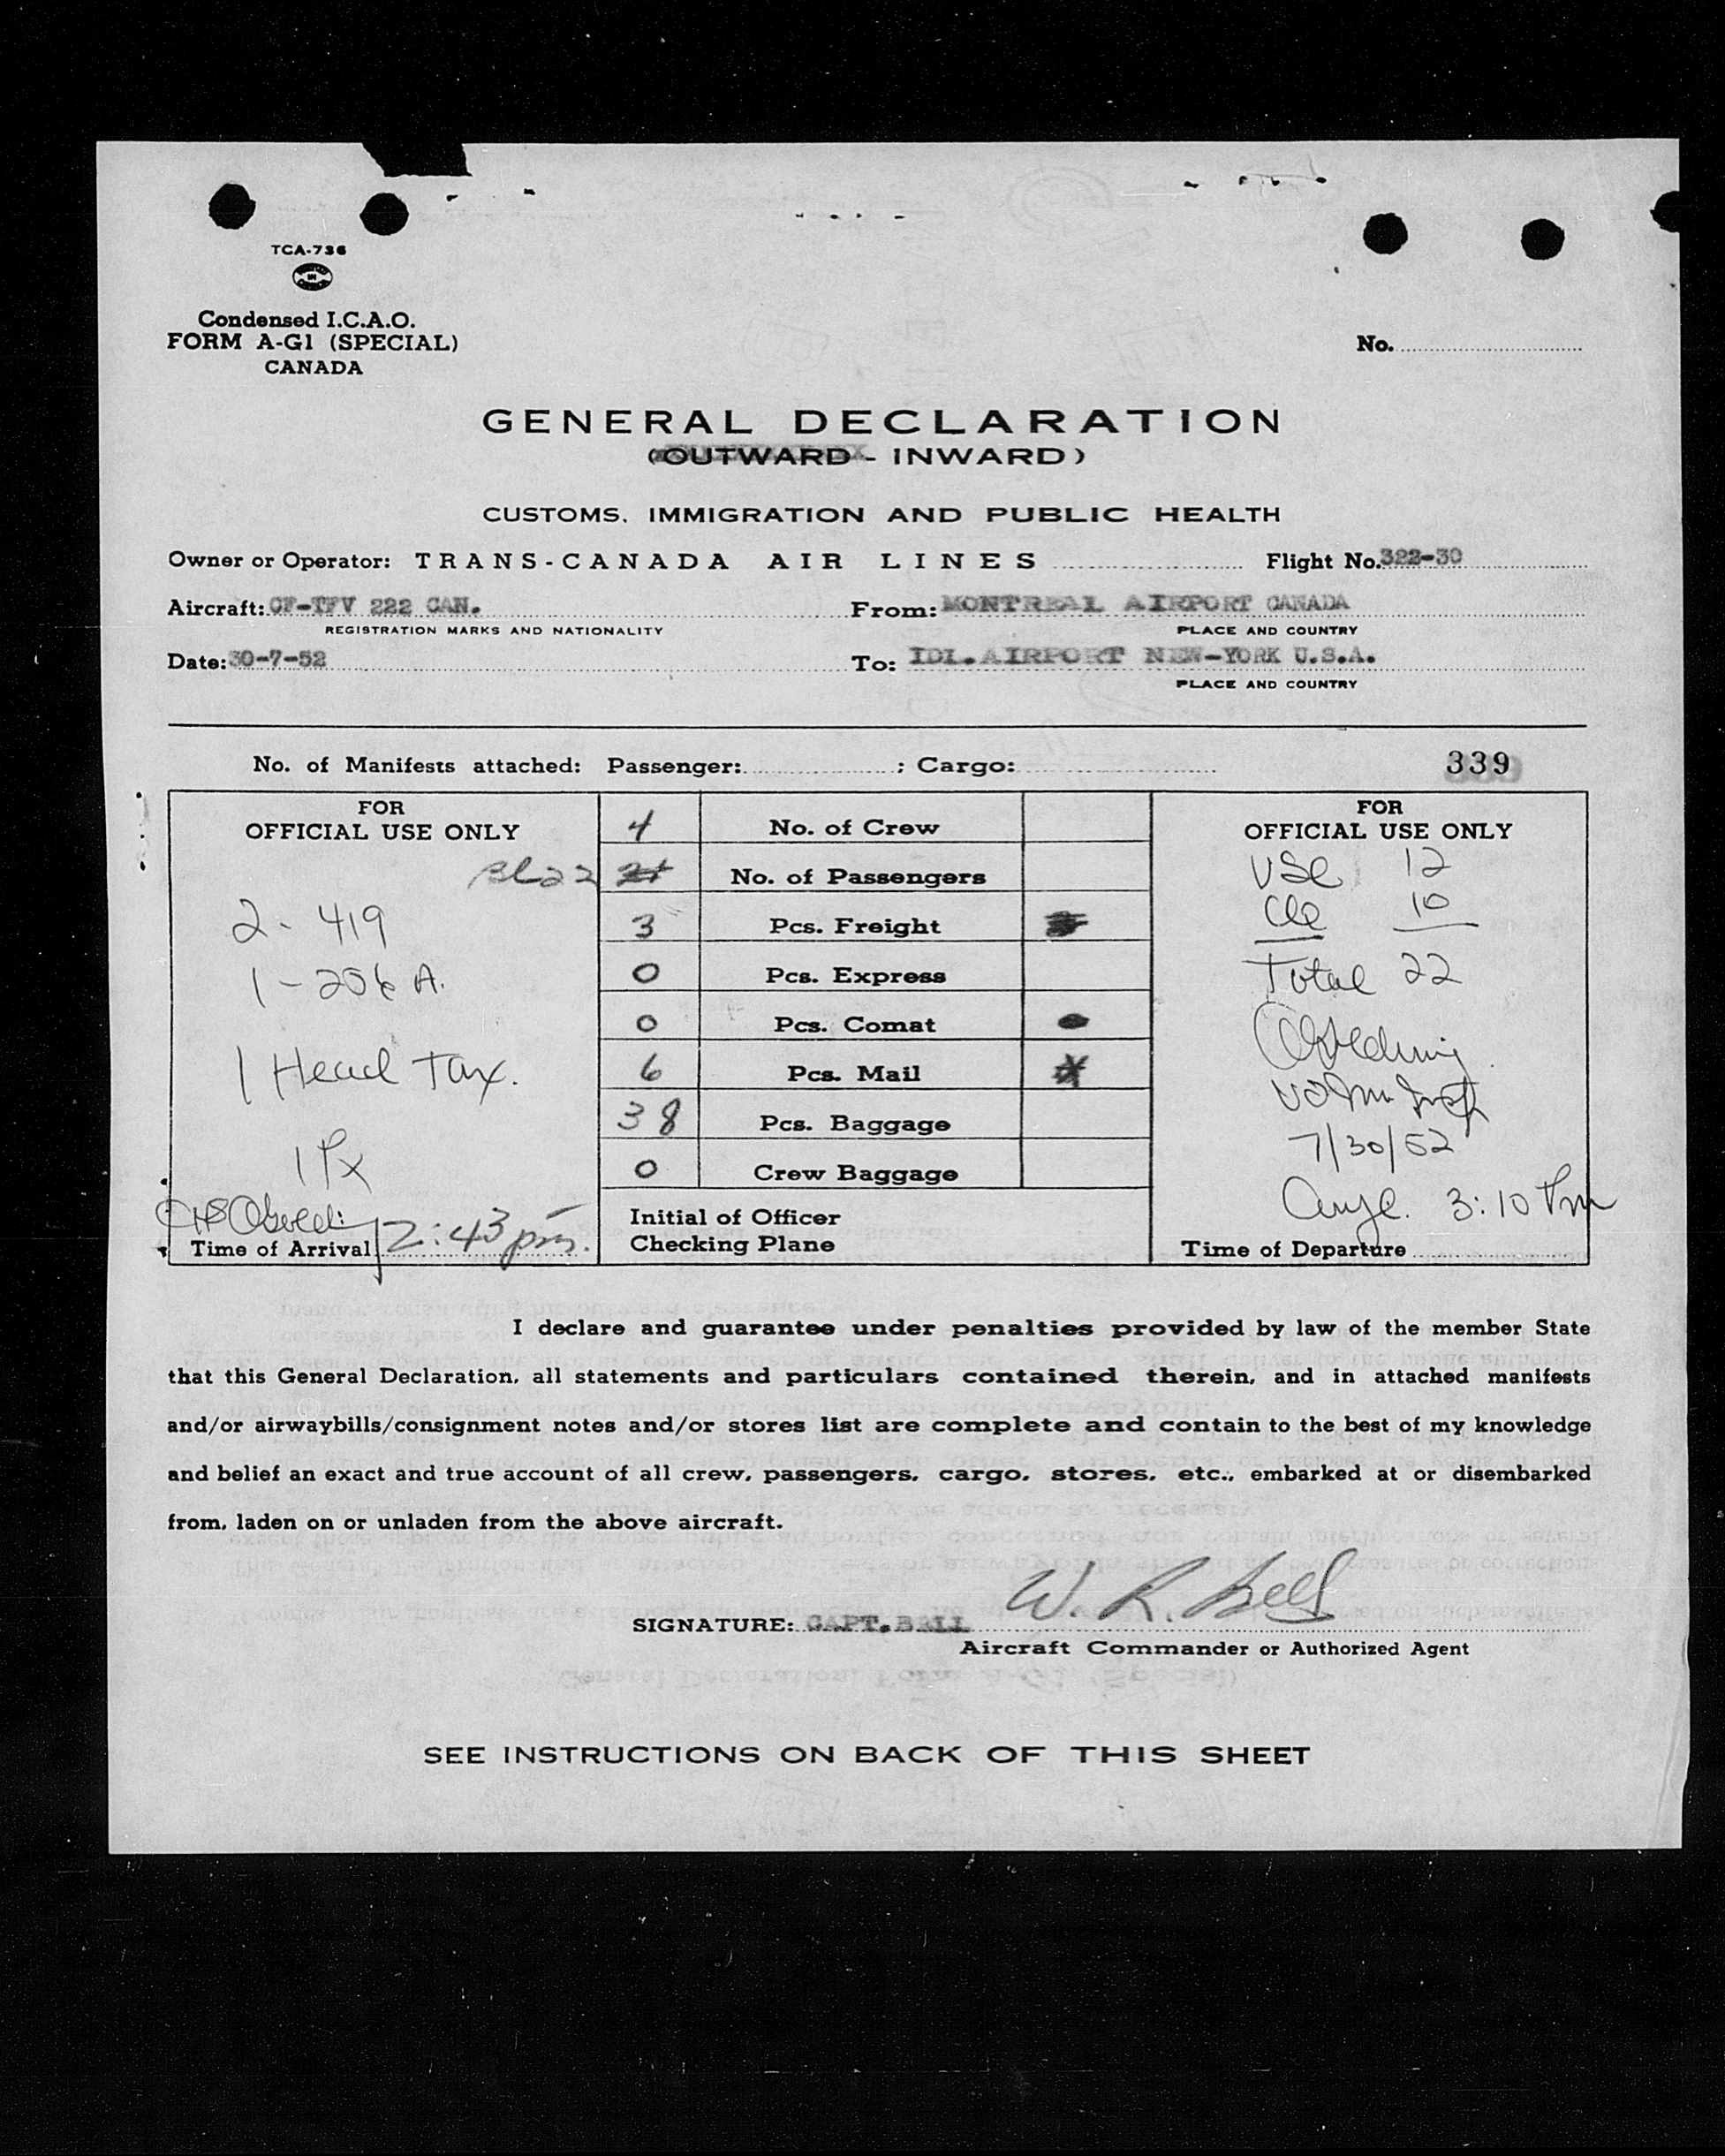 TCA-736
Condensed I.C.A.O.
FORM A-G1 (SPECIAL)
CANADA
No.
GENERAL DECLARATION
(OUTWARD - INWARD)
CUSTOMS, IMMIGRATION AND PUBLIC HEALTH
Owner or Operator: TRANS-CANADA AIR LINES Flight No. 322-30
Aircraft: CF-TFV 222 CAN. From: MONTREAL AIRPORT CANADA
REGISTRATION MARKS AND NATIONALITY PLACE AND COUNTRY
Date: 30-7-52 To: IDL.AIRPORT NEW-YORK U.S.A.
PLACE AND COUNTRY
No. of Manifests attached: Passenger: ; Cargo: 339
FOR
OFFICIAL USE ONLY
22
2 - 419
1 - 206 A.
1 Head Tax.
1 Px
Time of Arrival 2:43 pm.
4 No. of Crew
21 No. of Passengers
3 Pcs. Freight
0 Pcs. Express
0 Pcs. Comat
6 Pcs. Mail
38 Pcs. Baggage
0 Crew Baggage
Initial of Officer
Checking Plane
FOR
OFFICIAL USE ONLY
USC 12
10
Total 22
7/30/52
3:10 Pm
Time of Departure
I declare and guarantee under penalties provided by law of the member State
that this General Declaration, all statements and particulars contained therein, and in attached manifests
and/or airwaybills/consignment notes and/or stores list are complete and contain to the best of my knowledge
and belief an exact and true account of all crew, passengers, cargo, stores, etc., embarked at or disembarked
from, laden on or unladen from the above aircraft.
SIGNATURE: CAPT.BELL W. R. Bell
Aircraft Commander or Authorized Agent
SEE INSTRUCTIONS ON BACK OF THIS SHEET